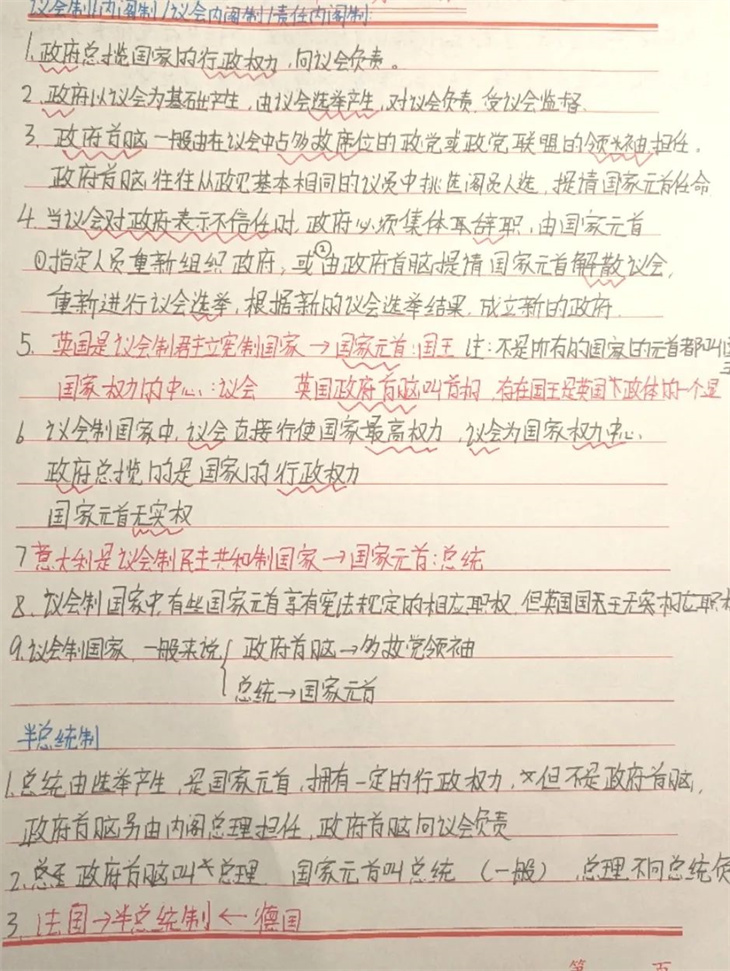 议会制/内阁制/议会内阁制/责任内阁制
1.政府总揽国家的行政权力,向议会负责。
2.政府以议会为基础产生,由议会选举产生,对议会负责,受议会监督.
3.政府首脑一般由在议会中占多数席位的政党或政党联盟的领袖担任.
政府首脑往往从政见基本相同的议员中挑选阁员人选,提请国家元首任命
4.当议会对政府表示不信任时,政府必须集体辞职,由国家元首
①指定人员重新组织政府,或②由政府首脑提请国家元首解散议会,
重新进行议会选举,根据新的议会选举结果,成立新的政府.
5.英国是议会制君主立宪制国家→国家元首:国王 注:不是所有的国家的元首都叫
国家权力的中心:议会 英国政府首脑叫首相,存在国王是英国政体的一个显
6.议会制国家中,议会直接行使国家最高权力,议会为国家权力中心.
政府总揽的是国家的行政权力
国家元首无实权
7意大利是议会制民主共和制国家→国家元首:总统
8.议会制国家中,有些国家元首享有宪法规定的相应职权,但英国国王无实相应职
9.议会制国家,一般来说{政府首脑→多数党领袖
总统→国家元首
半总统制
1.总统由选举产生,是国家元首,拥有一定的行政权力,但不是政府首脑,
政府首脑另由内阁总理担任,政府首脑向议会负责
2.政府首脑叫总理 国家元首叫总统 (一般),总理不向总统负
3.法国→半总统制←德国
第 页